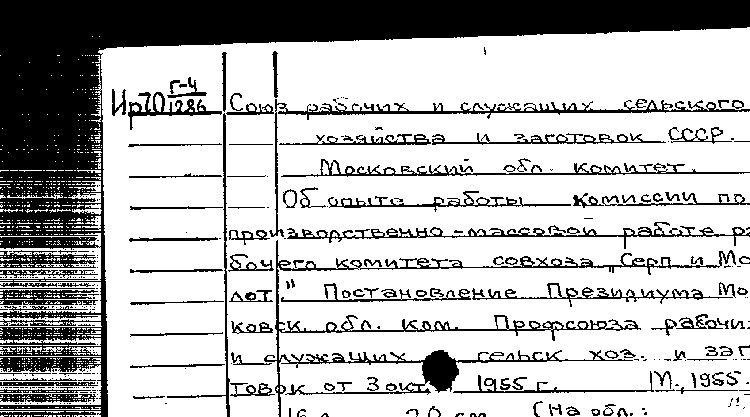 Ир70 Г-4/1286 Союз рабочих и служащих сельского
хозяйства и заготовок СССР.
Московский обл. комитет.
Об опыте работы комиссии по
производственно-массовой работе ра
бочего комитета совхоза „Серп и Мо
лот." Постановление Президиума Мо
ковск. обл. ком. Профсоюза рабочи
и служащих сельск. хоз. и заг
товок от 3 окт. 1955 г. М., 1955.
16 20 см. (На обл.: